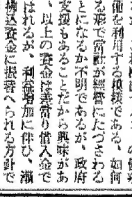 備を利用する模樣である、如何
る形で當社が經營にたづさわる
とになるか不明であるが、政府
支援もあることだから、興味があ
、以上の資金は差當り借入金で
はれるが、利益增加に伴ひ、漸
拂込資金に振替へられる方針で